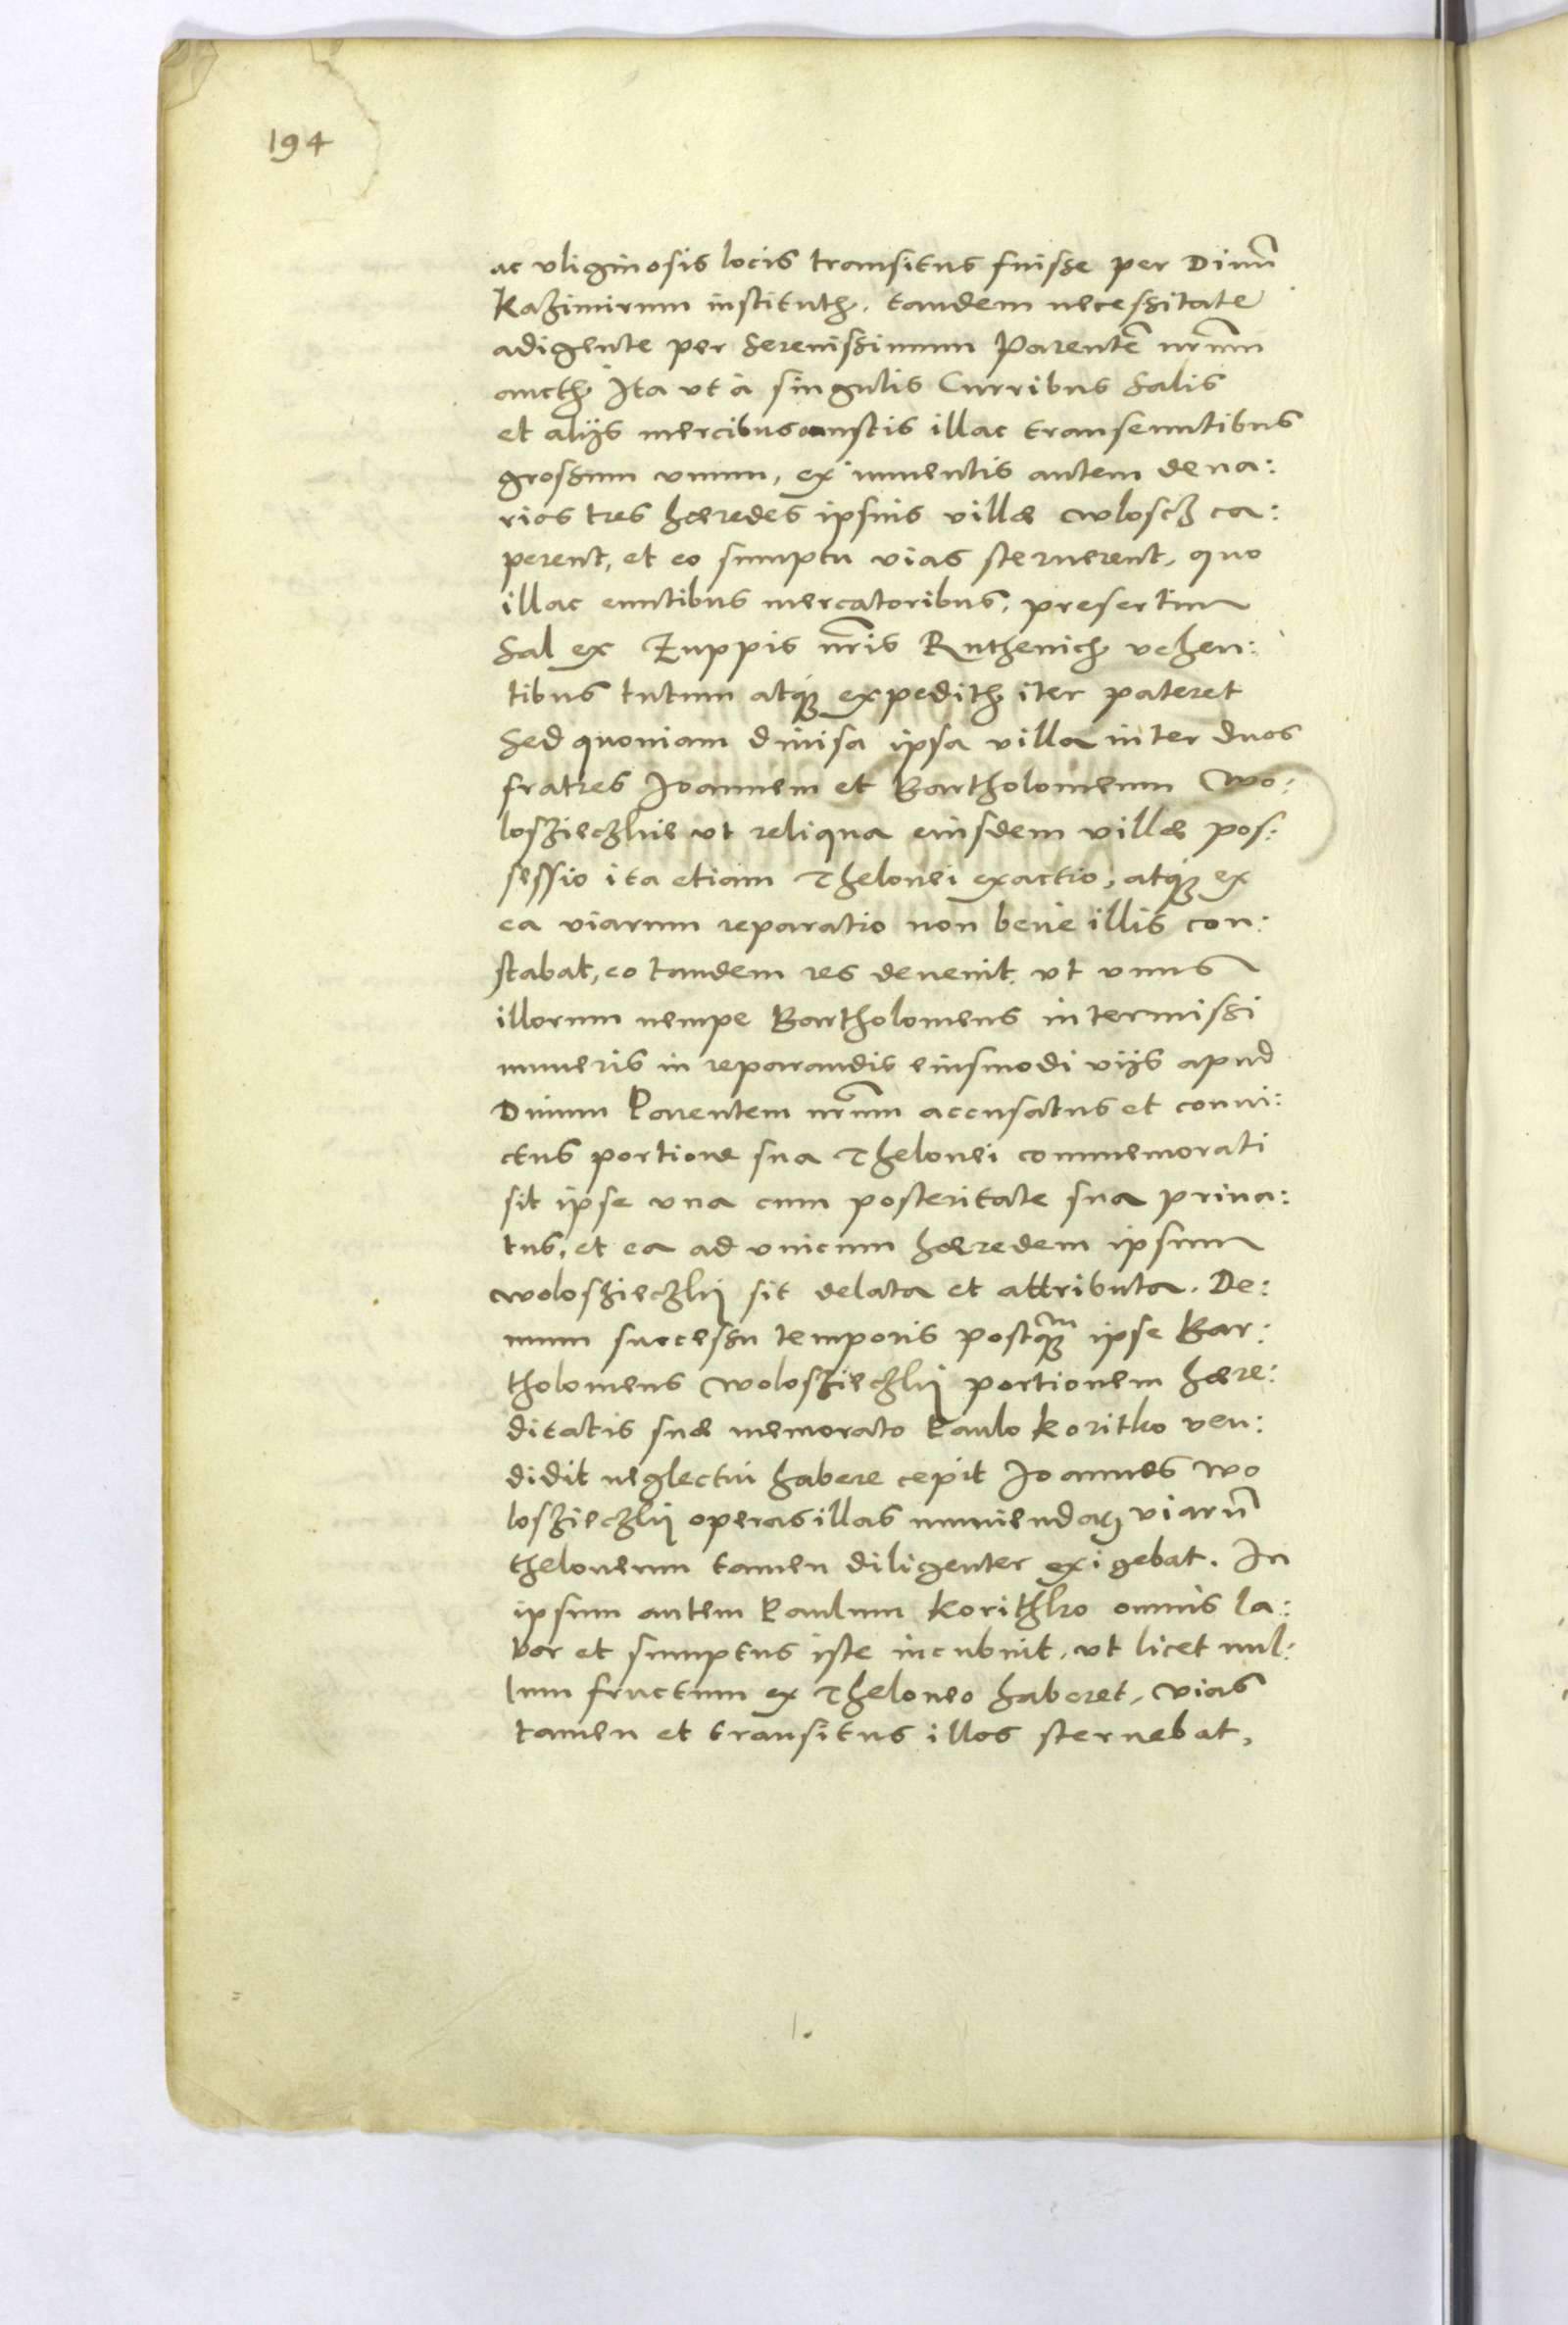 194
ac vliginosis locis transitus fuisse per Diuū
Kazimirum institutꝫ. tandem necessitate
adigente per Serenissimum Parentē nr̄um
auctꝫ Ita vt à singulis Curribus Salis
et alijs mercibus onustis illac transeuntibus
grossum vnum, ex iumentis autem dena:
rios tres hæredes ipsius villæ wloscz ca:
perent, et eo sumptu vias sternerent, quo
illac euntibus mercatoribus, presertim
Sal ex Zuppis nr̄is Ruthenicꝫ vehen:
tibus tutum atqꝫ expeditꝫ iter pateret
Sed quoniam diuisa ipsa villa inter duos
fratres Ioannem et Bartholomeum Wo:
loszieczkie vt reliqua eiusdem villæ pos:
sessio ita etiam Thelonei exactio, atqꝫ ex
ea viarum reparatio non bene illis con:
stabat, eo tandem res deuenit, vt vnus
illorum nempe Bartholomeus intermissi
muneris in reparandis eiusmodi vijs apud
Diuum Parentem nr̄um accusatus et conui:
ctus portione sua Thelonei commemorati
sit ipse vna cum posteritate sua priua:
tus, et ea ad vnicum hæredem ipsum
woloszieczkij sit delata et attributa. De:
mum successu temporis postqꝫm ipse Bar:
tholomeus woloszieczkij portionem hære:
ditatis suæ memorato Paulo Koritko ven:
didit neglectui habere cepit Ioannes Wo
loszieczkij operas illas muniendaꝝ viarū
theloneum tamen diligenter exigebat. In
ipsum autem Paulum Korithko omnis la:
bor et sumptus iste incubuit, vt licet nul:
lum fructum ex Theloneo haberet, vias
tamen et transitus illos sternebat,